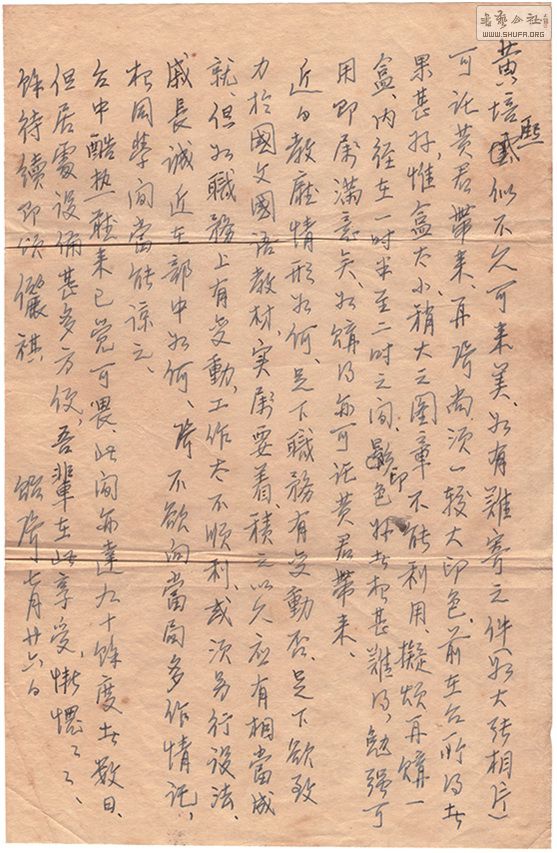 書藝公社
WWW.SHUFA.ORG
黃培熙似不久可來美、如有難寄之件(如大張相片)
可託黃君帶來、再 尚須一較大印色、前在台所得者
果甚好、惟盒太小、稍大之圖章不能利用、擬煩再購一
盒、內徑在一吋半至二吋之間、印色好者想甚難得、勉強可
用即屬滿意矣、如購得亦可託黃君帶來、
近日教廳情形如何、足下職務有變動否、足下欲致
力於國文國語教材、實屬要着、積之以久應有相當成
就、但如職務上有變動、工作太不順利、或須另行設法、
戚長誠近在部中如何、 不欲向當局多作情託、
想同學間當能諒之、
台中酷熱聽來已覺可畏、此間亦達九十餘度者數日、
但居處設備甚多方便、吾輩在此享受、慚愧之之、
餘待續即頌儷祺 七月廿六日